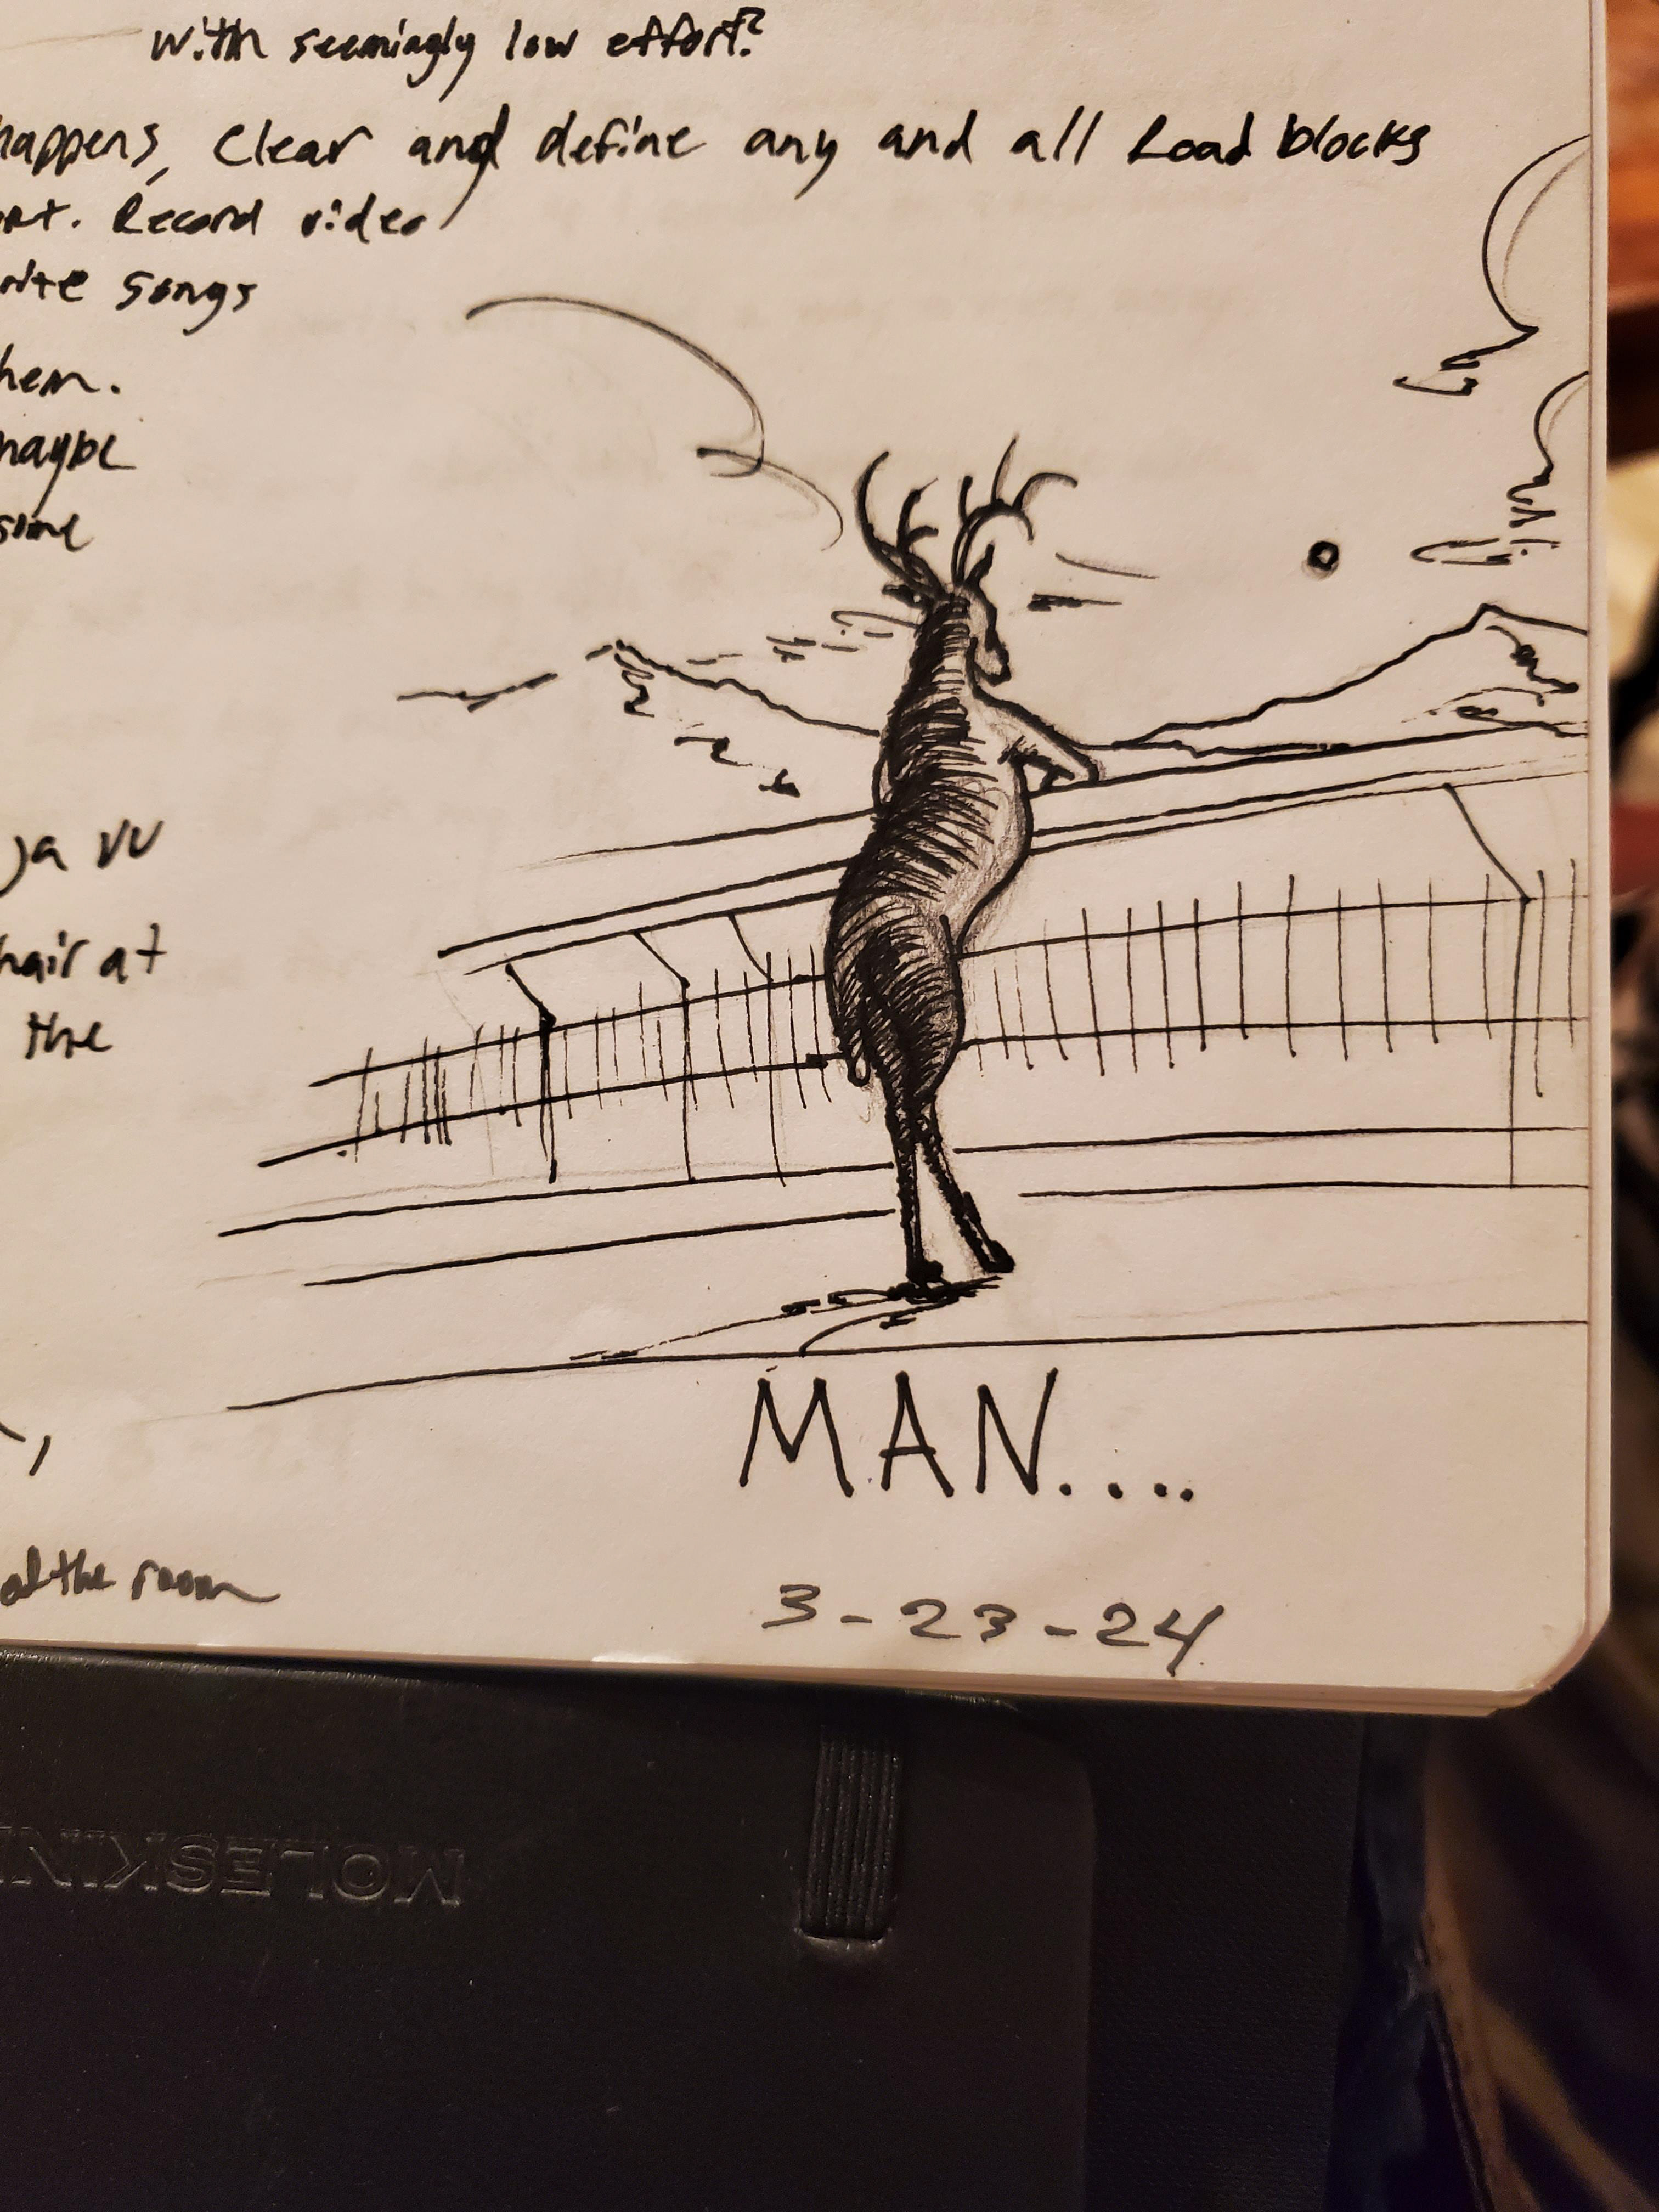 with seemingly low effort?
happens, Clear and define any and all Road blocks
Record video
songs
them.
maybe
some
ja vu
hair at
the
MAN....
of the room
3-23-24
MOLESKIN